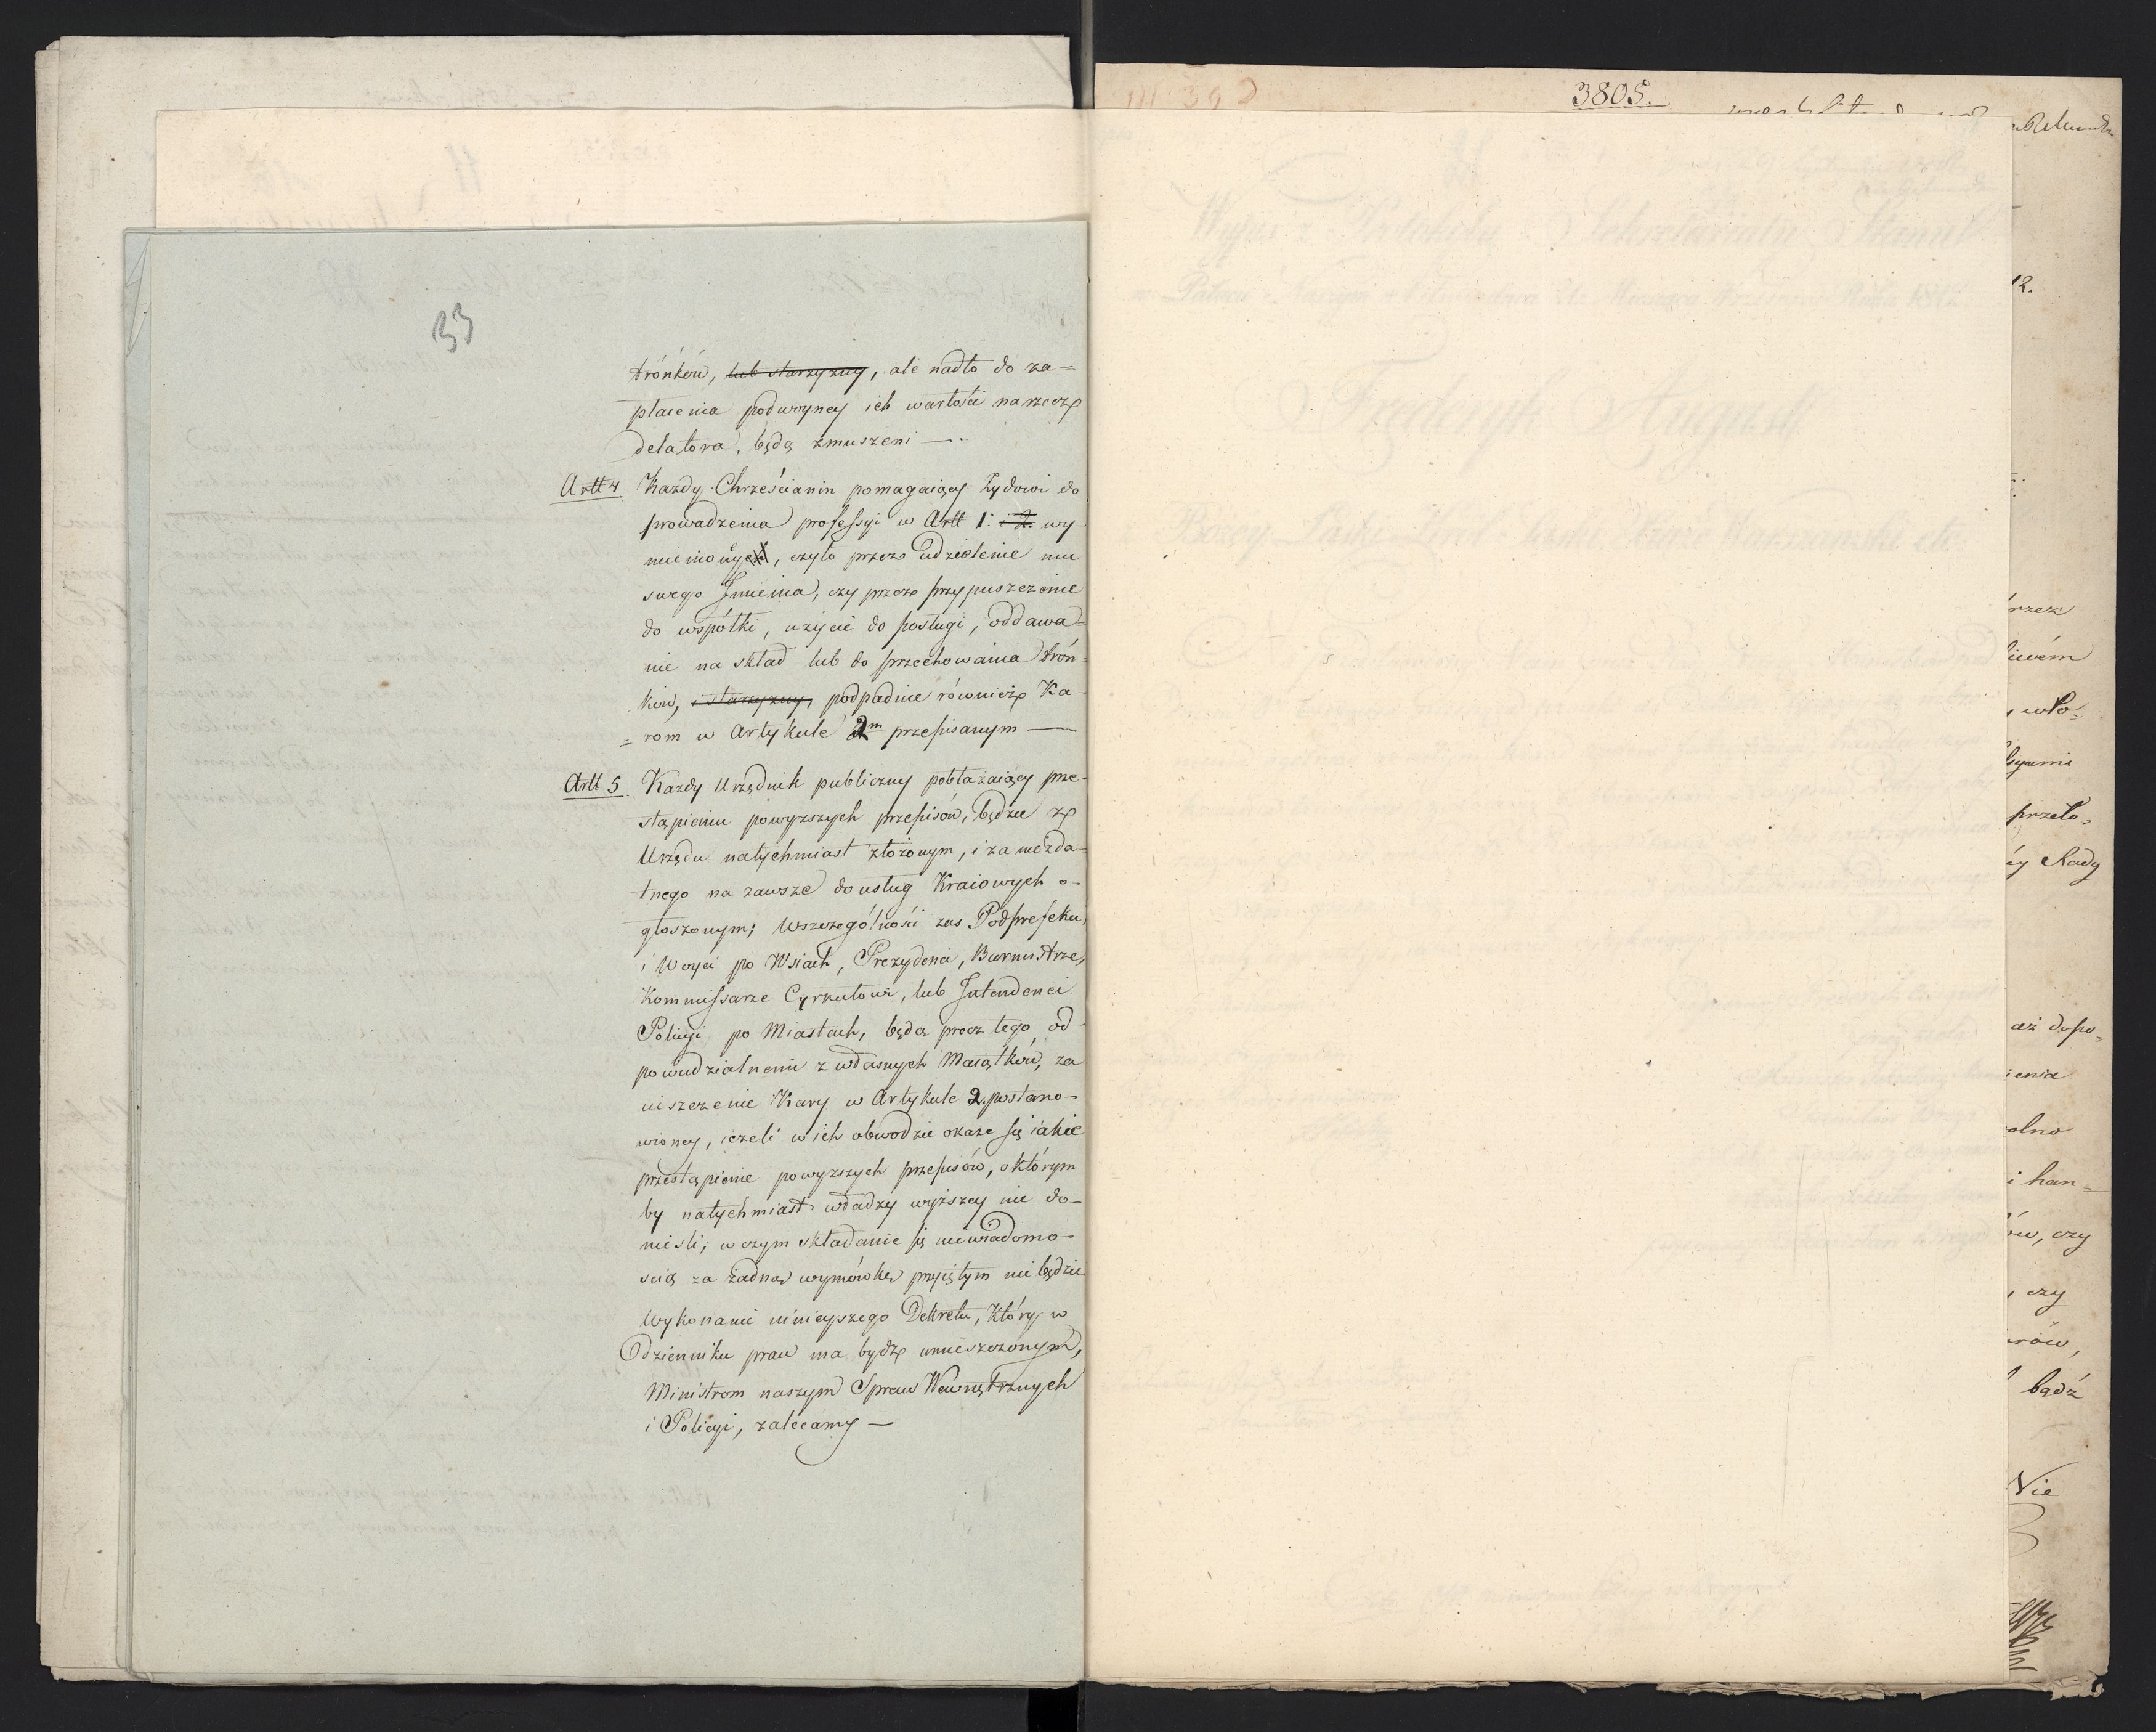 33
trónków, lub starzyzny, ale nadto do za=
płacenia podwoyney ich wartości na rzecz
delatora, będą zmuszeni —
Artt 4 Kazdy Chrześcianin pomagaiący Zydowi do
prowadzenia professyi w Artt 1. i 2. wy-
mienioney, czyto przez udzielenie mu
swego Imienia, czy przez przypuszczenie
do wspołki, uzycie do posługi, oddawa=
nie na skład lub do przechowania trón=
ków, i starzyzny, podpadnie równiez Ka-
= rom w Artykule 2m przepisanym —
Artt 5. Kazdy Urzędnik publiczny pobłazaiący prze-
stąpieniu powyzszych przepisów, będzie z
Urzędu natychmiast złozonym, i za niezda-
tnego na zawsze do usług Kraiowych o-
głoszonym; Wszczególności zas Podprefekci,
i Woyci po Wsiach, Prezydenci, Burmistrze,
Kommissarze Cyrkułowi, lub Intendenci
Policyi po Miastach, będą procz tego od-
powiedzialnemi z własnych Maiątków, za
uiszczenie Kary w Artykule 2. postano-
wioney, iezeli w ich obwodzie okaze się iakie
przestąpienie powyzszych przepisów, o którym
by natychmiast władzy wyzszey nie do-
niesli; w czym składanie się niewiadomo-
scią za zadną wymówkę przyiętym nie będzie
Wykonanie ninieyszego Dekretu, Który w
Dzienniku praw ma bydz umieszczonym,
Ministrom naszym Spraw Wewnętrznych
i Policyi, zalecamy —
3805.
12.
rzez
wło=
przeło=
éy Rady
aż dopo=
ienia
olno
i han=
ów, czy
, czy
rów,
bądź
Nie